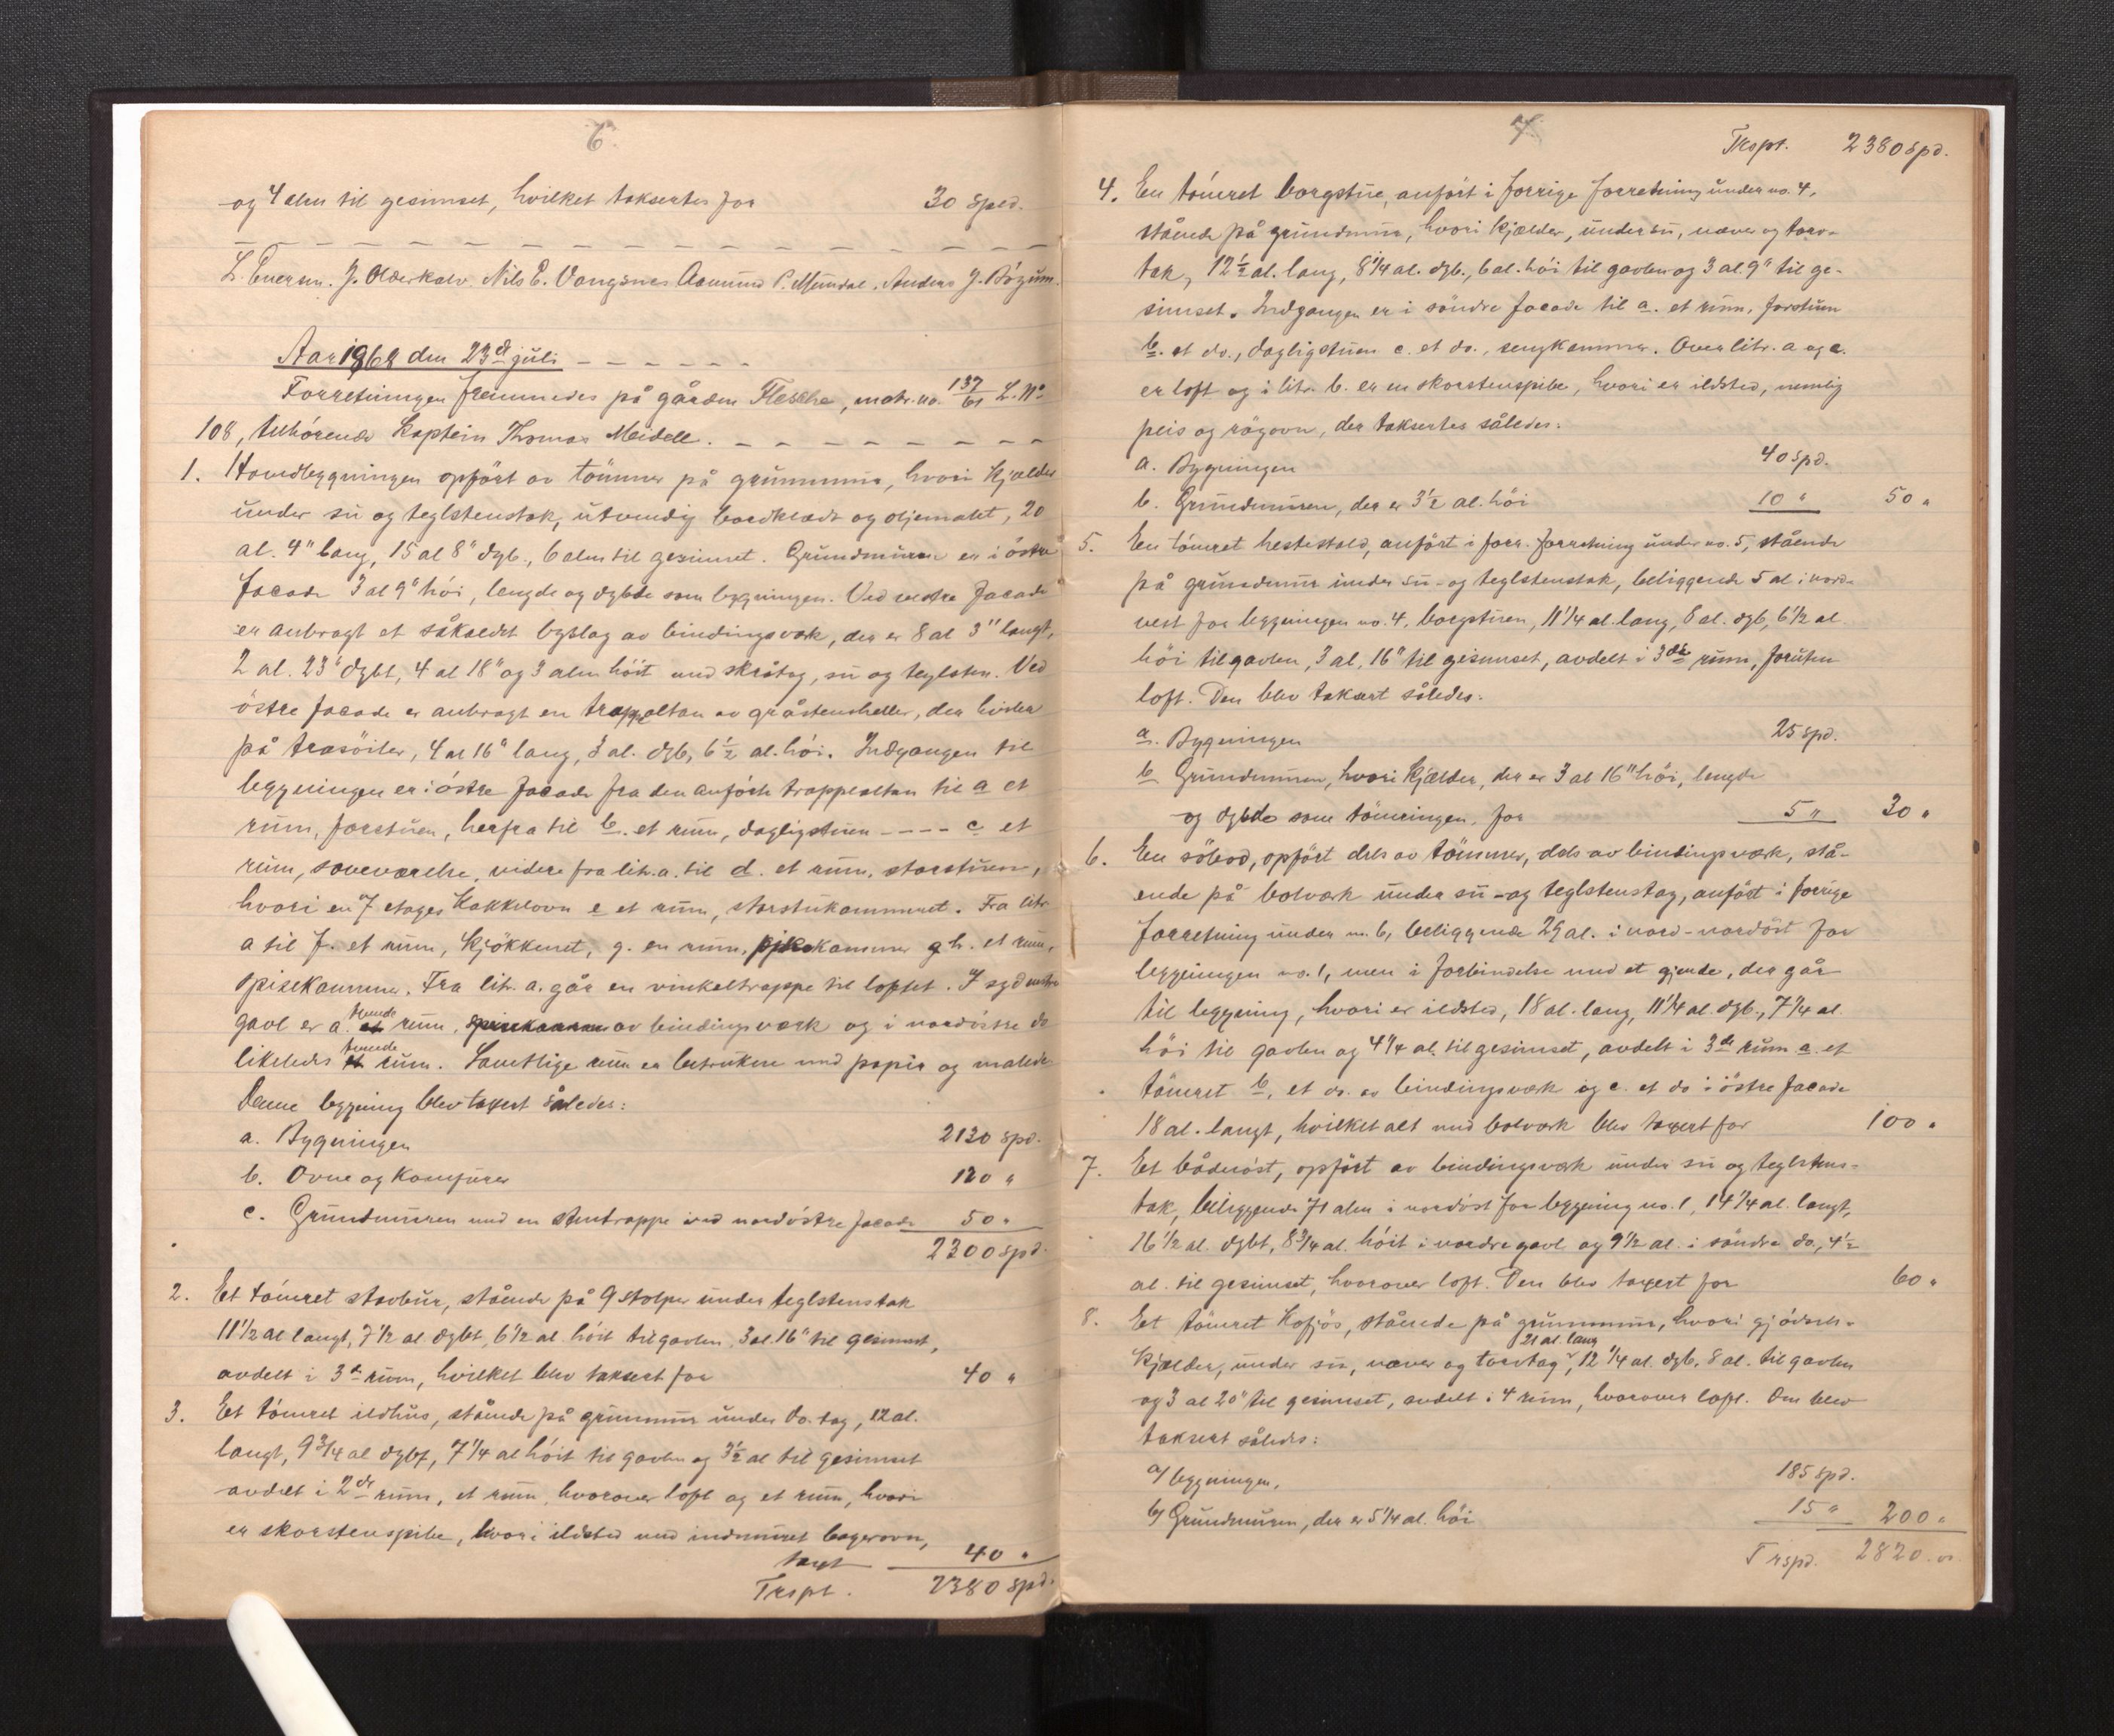 6.
og 4 alen til gesimset, hvilket taksertes for 30 spd.
L. Enersen. J. Olderkalv. Nils E. Vangsnes Aamund P. Mundal. Anders J. Bøyum.
Aar 1868 den 23de juli
Forretningen fremmedes på gården Flesche, matr. no. 137/61 L. No
108, tilhørende Kaptein Thomas Meidell.
1. Hovedbygningen opført av tømmer på grunnmur, hvori kjælder
under su og teglstenstak, utvendig bordklædt og oljemalet, 20
al. 4" lang, 15 al 8" dyb., 6 alen til gesimset. Grundmuren er i østre
facade 3 al 9" høi, lengde og dybde som bygningen. Ved vestre facade
er anbragt et såkaldt bislag av bindingsverk, der er 8 al 3" langt,
2 al. 23" dybt, 4 al 18" og 3 alen høit med skråtag, su og teglsten. Ved
østre facade er anbragt en trappaltan av gråstensheller, der hviler
på træsøiler, 4 al 16" lang, 3 al. dyb, 6 1/2 al. høi. Indgangen til
bygningen er i østre facade fra den anførte trappealtan til a et
rum, forstuen, herfra til b. et rum, dagligstuen ---- c et
rum, soveværelse, videre fra litr. a. til d. et rum, storstuen,
hvori en 7 etages Kakkelovn e et rum, storstukammeret. Fra litr
a til f. et rum, kjøkkenet, g. en rum, pikekammer og h. et rum,
spisekammer. Fra litr. a. går en vinkeltrappe til loftet. I sydvestre
gavl er a. tvende rum, av bindingsværk og i nordøstre do
likeledes tvende rum. Samtlige rum er betrukne med papir og malede
Denne bygning blev taxert således:
a. Bygningen 2130 spd.
b. Ovne og Komfurer 120 "
c. Grundmuren med en stentrappe ved nordøstre facade 50 "
2300 spd.
2. Et tømret stovbur, stående på 9 stolper under teglstenstak
11 1/2 al langt, 7 1/2 al dybt, 6 1/2 al. høit til gavlen, 3 al. 16" til gesimset,
avdelt i 3de rum, hvilket blev taksert for 40 "
3. Et tømret ildhus, stående på grunmur under do. tag, 12 al.
langt, 9 3/4 al dybt, 7 1/4 al høit til gavlen og 3 1/2 al til gesimset
avdelt i 2de rum, et rum, hvorover loft og et rum, hvori
er skorstenspibe, hvori ildsted med indmuret bagerovn,
taxt 40 "
Trspt. 2380 spd.
7.
Trspt. 2380 spd.
4. En tømret borgstue, anført i forrige forretning under no. 4,
stående på grundmur, hvori kjælder, under su, næver og torv-
tak, 12 1/2 al. lang, 8 1/4 al. dyb., 6 al. høi til gavlen og 3 al. 9" til ge-
simset. Indgangen er i søndre facade til a. et rum, forstuen
b. et do., dagligstuen c. et do., sengkammer. Over litr. a og c.
er loft og i litr. b. er en skorstenspibe, hvori er ildsted, nemlig
peis og røgovn, der taksertes således:
a. Bygningen 40 spd.
b. Grundmuren, der er 3 1/2 al. høi 10 " 50 "
5. En tømret hestestald, anført i forr. forretning under no. 5, stående
på grundmur under su- og teglstenstak, beliggende 5 al i nord-
vest for bygningen no. 4, borgstuen, 11 1/4 al. lang, 8 al. dyb, 6 1/2 al
høi til gavlen, 3 al, 16" til gesimset, avdelt i 3de rum, foruten
loft. Den blev taksert således:
a. Bygningen 25 spd.
b Grundmuren, hvori kjælder, der er 3 al 16" høi, lengde
og dybde som tømringen, for 5 " 30 "
6. En søbod, opført dels av tømmer, dels av bindingsværk, stå-
ende på bolværk under su- og teglstenstag, anført i forrige
forretning under no. 6, beliggende 29 al. i nord-nordøst for
bygningen no. 1, men i forbindelse med et gjerde, der går
til bygning, hvori er ildsted, 18 al. lang, 11 1/4 al. dyb., 7 1/4 al.
høi til gavlen og 4 1/4 al. til gesimset, avdelt i 3de rum a. et
tømret b. et do. av bindingsværk og c. et do i østre facade
18 al. langt, hvilket alt med bolværk blev taxert for 100 "
7. Et bådenøst, opført av bindingsværk under su og teglstens-
tak, beliggende 71 alen i nordøst for bygning no. 1, 14 1/4 al. langt,
16 1/2 al. dybt, 8 3/4 al. høit i nordre gavl og 9 1/2 al. i søndre do., 4 1/2
al. til gesimset, hvorover loft. Den blev taxert for 60 "
8. Et tømret Kofjøs, stående på grunnmur, hvori gjødsel-
kjælder, under su, næver og torvtag, 21 al. lang, 12 1/4 al. dyb, 8 al. til gavlen
og 3 al 20" til gesimset, avdelt i 4 rum, hvorover loft. Den blev
taksert således:
a/ bygningen, 185 spd.
b/ Grundmuren, der er 5 1/4 al. høi 15 " 200 "
Trspd. 2820 "